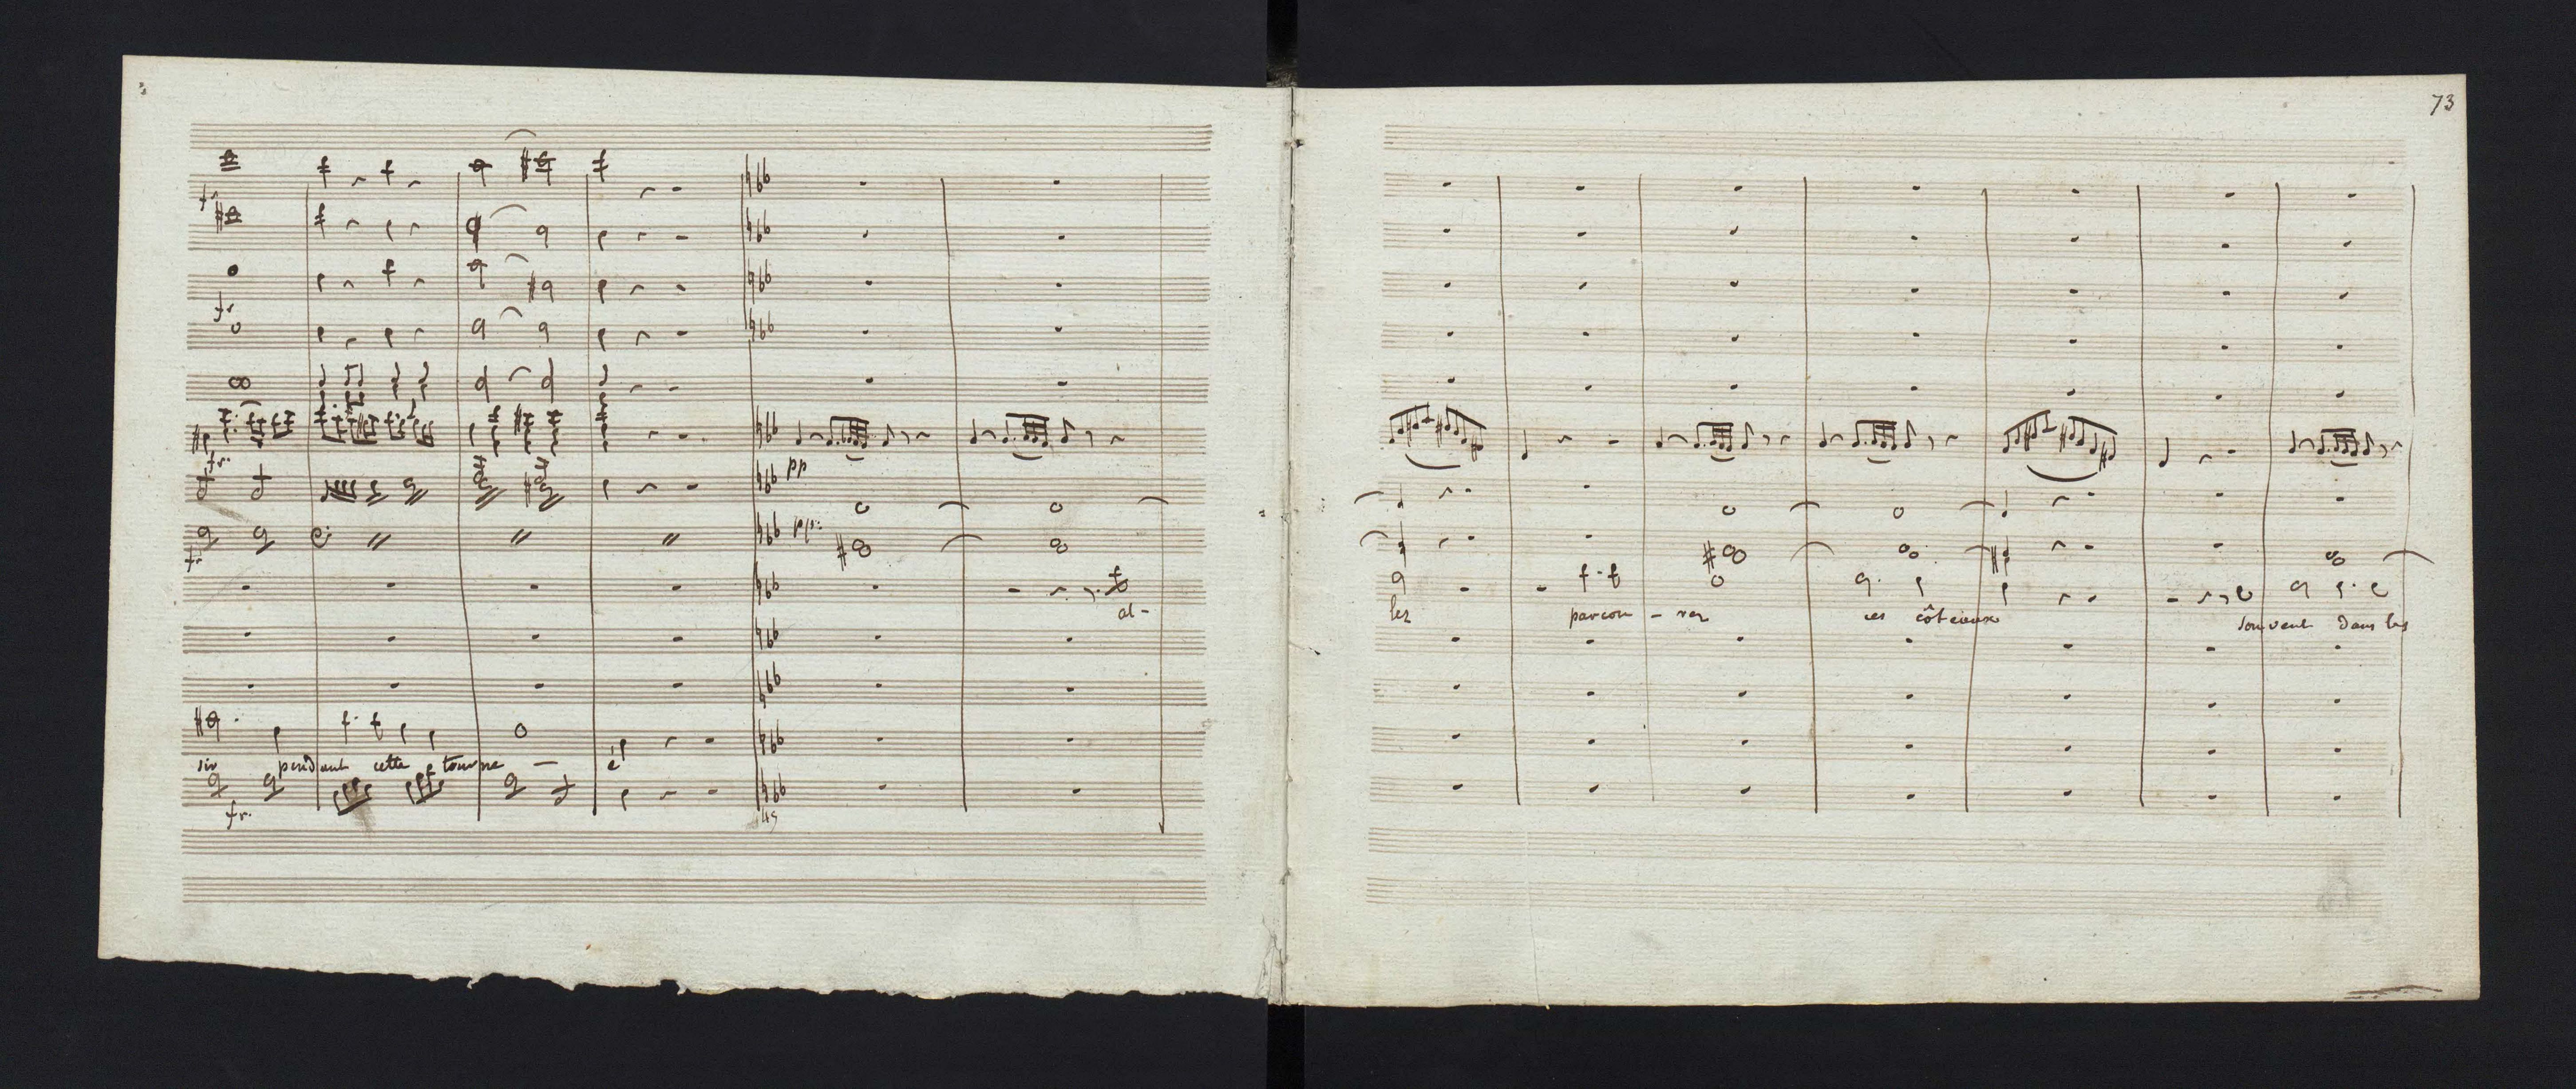 73
fr
fr
fr.
pp
pp.
fr
al-
sir pendant cette tourne - é
fr.
lez parcou - rez ces côteaux souvent dans les